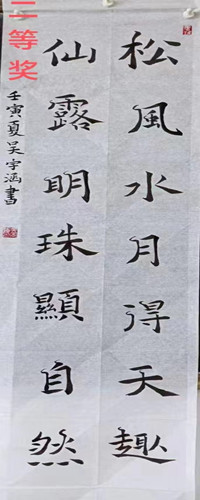 松風水月得天趣
仙露明珠顯自然
壬寅夏吴宇涵書
二等奖